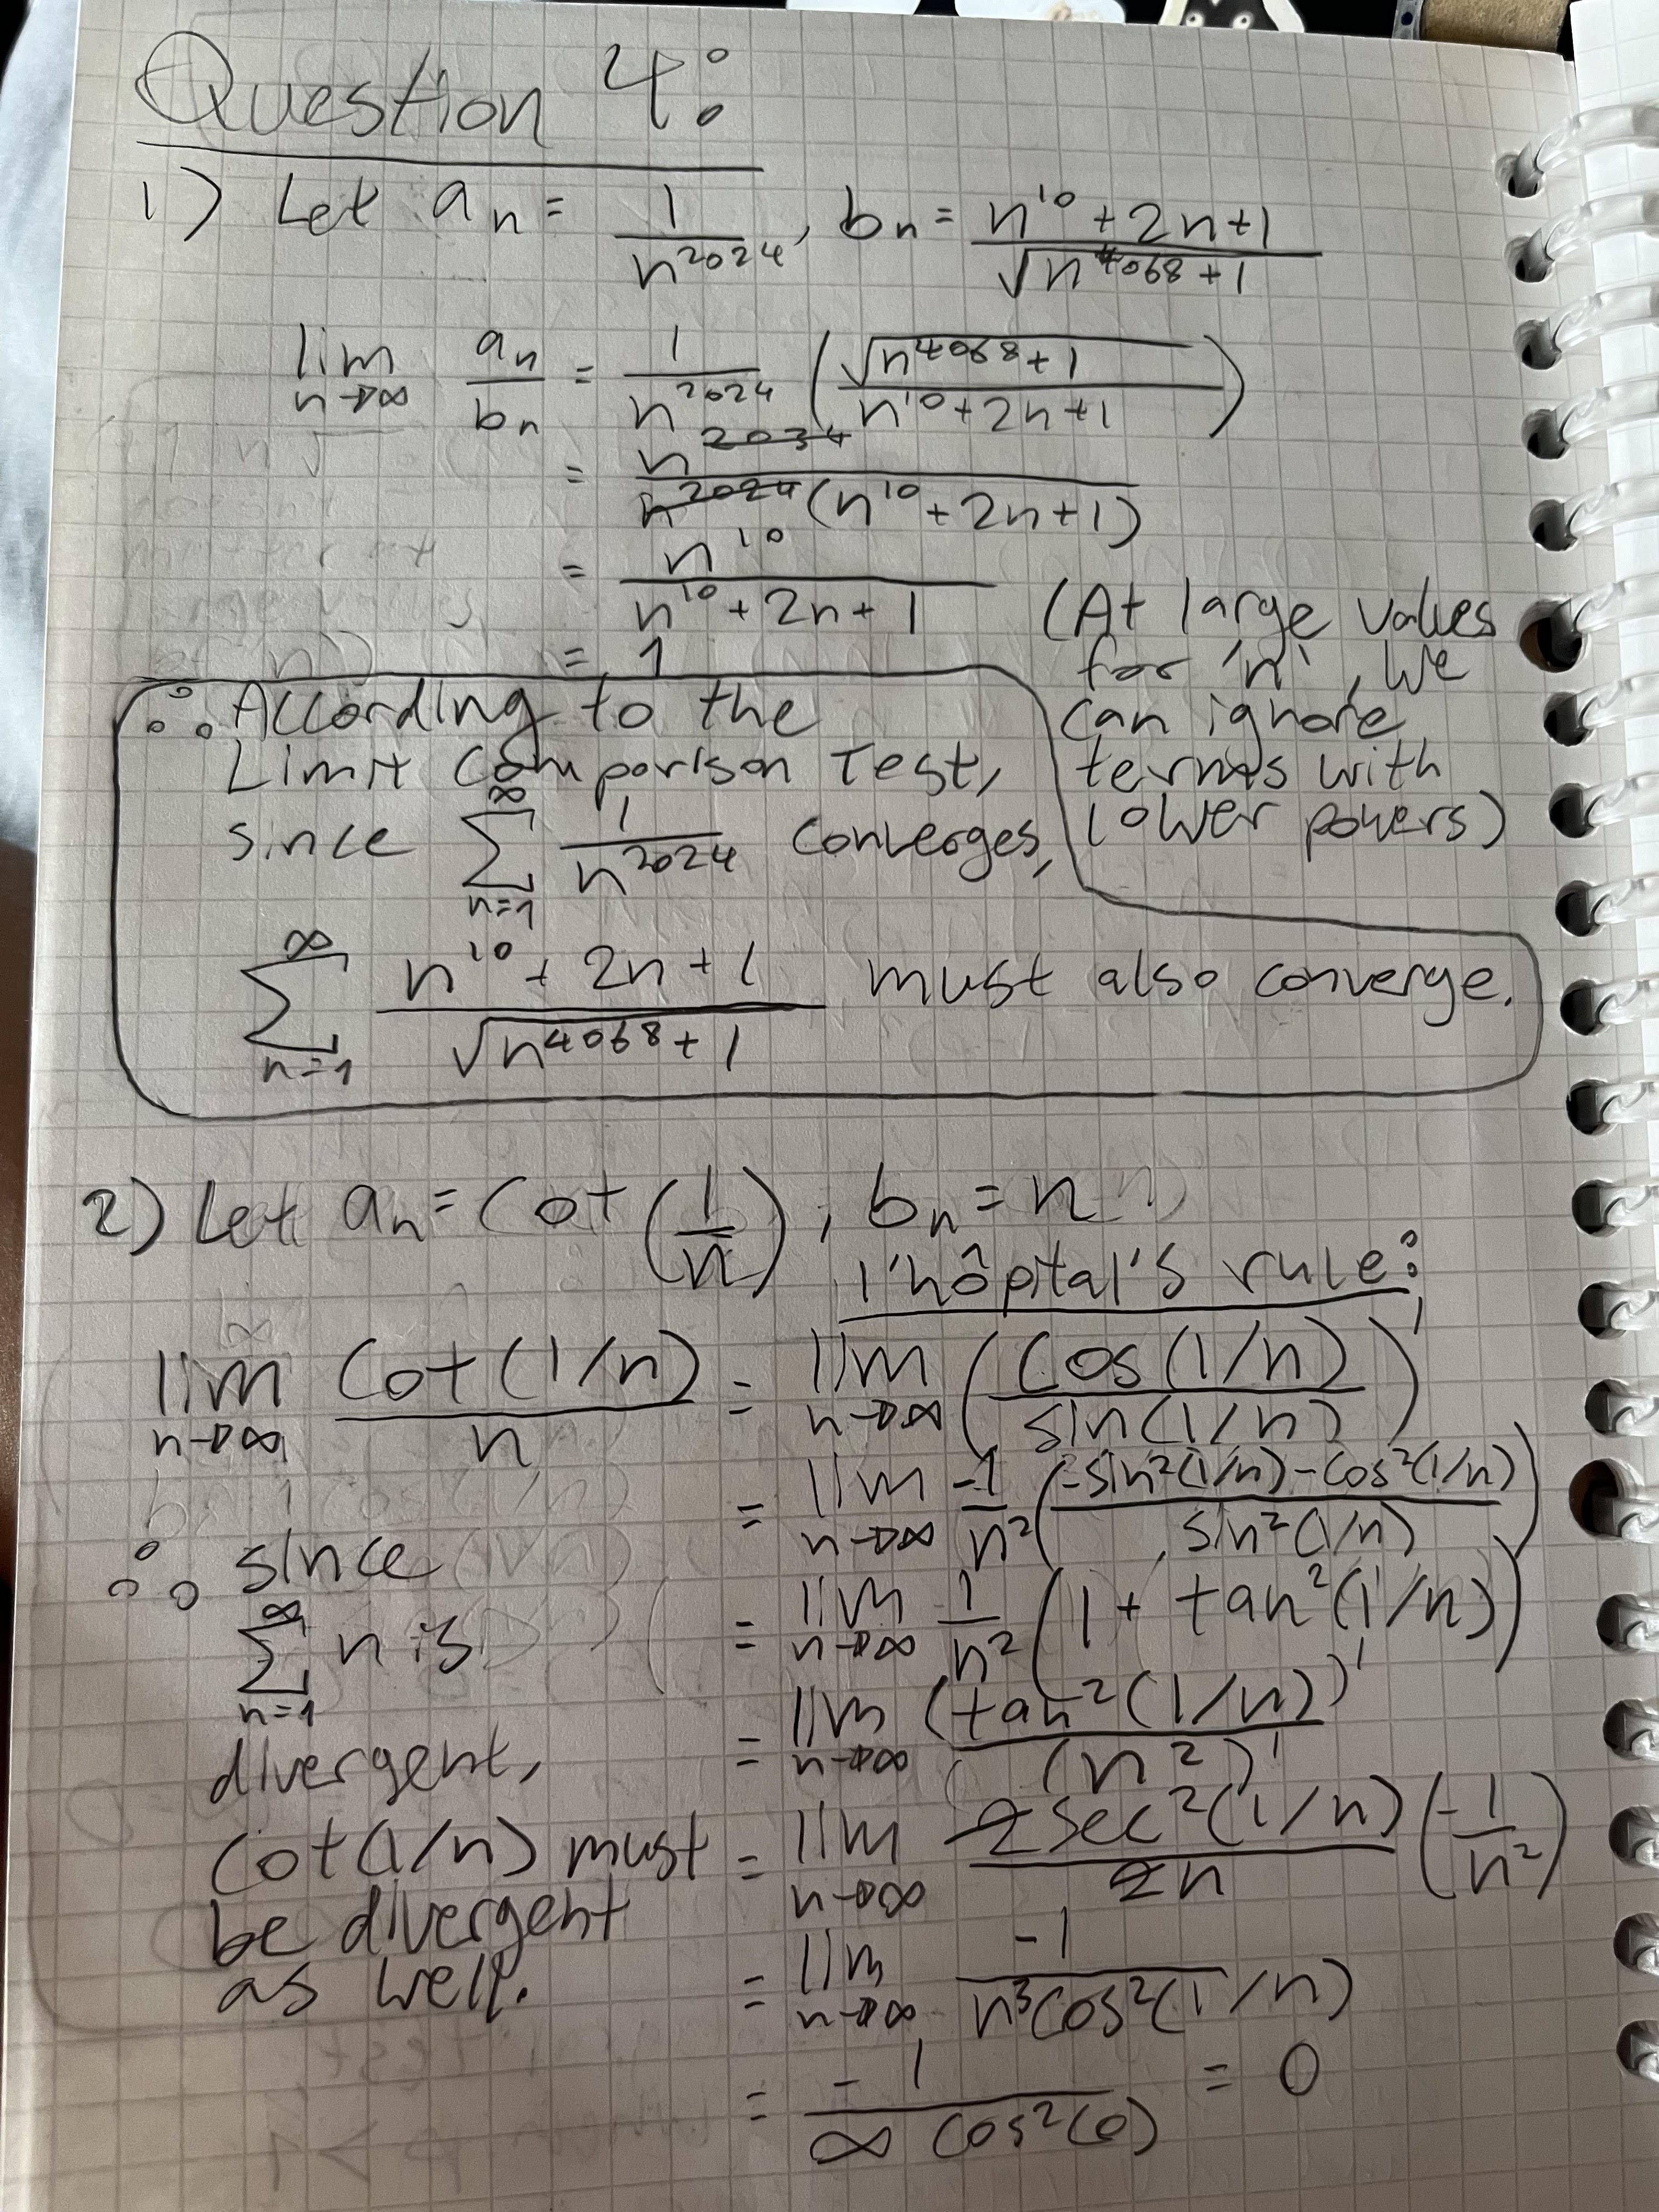 Question 4:
1) Let aₙ = 1/n²⁰²⁴, bₙ = (n¹⁰ + 2n + 1)/√(n⁴⁰⁶⁸ + 1)
lim n→∞ aₙ/bₙ = 1/n²⁰²⁴ (√(n⁴⁰⁶⁸ + 1)/(n¹⁰ + 2n + 1))
= n²⁰³⁴/(n²⁰²⁴(n¹⁰ + 2n + 1))
= n¹⁰/(n¹⁰ + 2n + 1)
= 1
(At large values
for 'n', we
can ignore
terms with
lower powers)
∴ According to the
Limit Comparison Test,
since ∞ Σ n=1 1/n²⁰²⁴ converges,
∞ Σ n=1 (n¹⁰ + 2n + 1)/√(n⁴⁰⁶⁸ + 1) must also converge.
2) Let aₙ = Cot(1/n), bₙ = n
l'hôpital's rule:
lim n→∞ Cot(1/n)/n = lim n→∞ (Cos(1/n)/sin(1/n))'
= lim n→∞ -1/n² ((-sin²(1/n) - cos²(1/n))/sin²(1/n))
= lim n→∞ 1/n² (1 + tan²(1/n))
= lim n→∞ (tan²(1/n))'/(n²)'
= lim n→∞ 2sec²(1/n)/2n (-1/n²)
= lim n→∞ -1/(n³cos²(1/n))
= -1/(∞ cos²(0)) = 0
∴ since
∞ Σ n=1 n is
divergent,
cot(1/n) must
be divergent
as well.